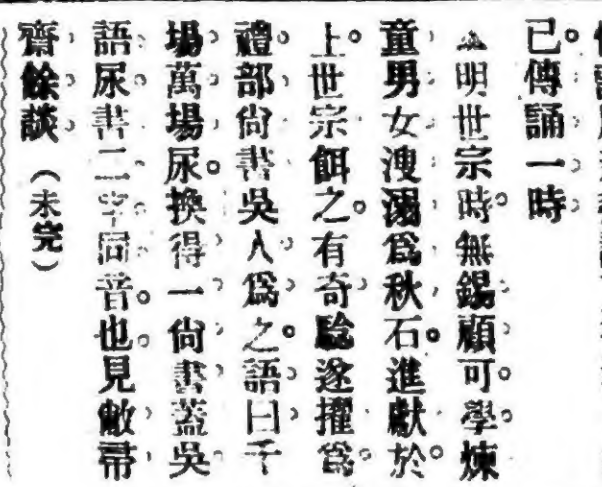 已傳誦一時
▲明世宗時無錫顧可學煉
童男女溲溺爲秋石進獻於
上世宗餌之有奇驗遂擢爲
禮部尙書吳人爲之語曰千
塲萬塲尿換得一尙書蓋吳
語尿書二字同音也見敝帚
齋餘談（未完）